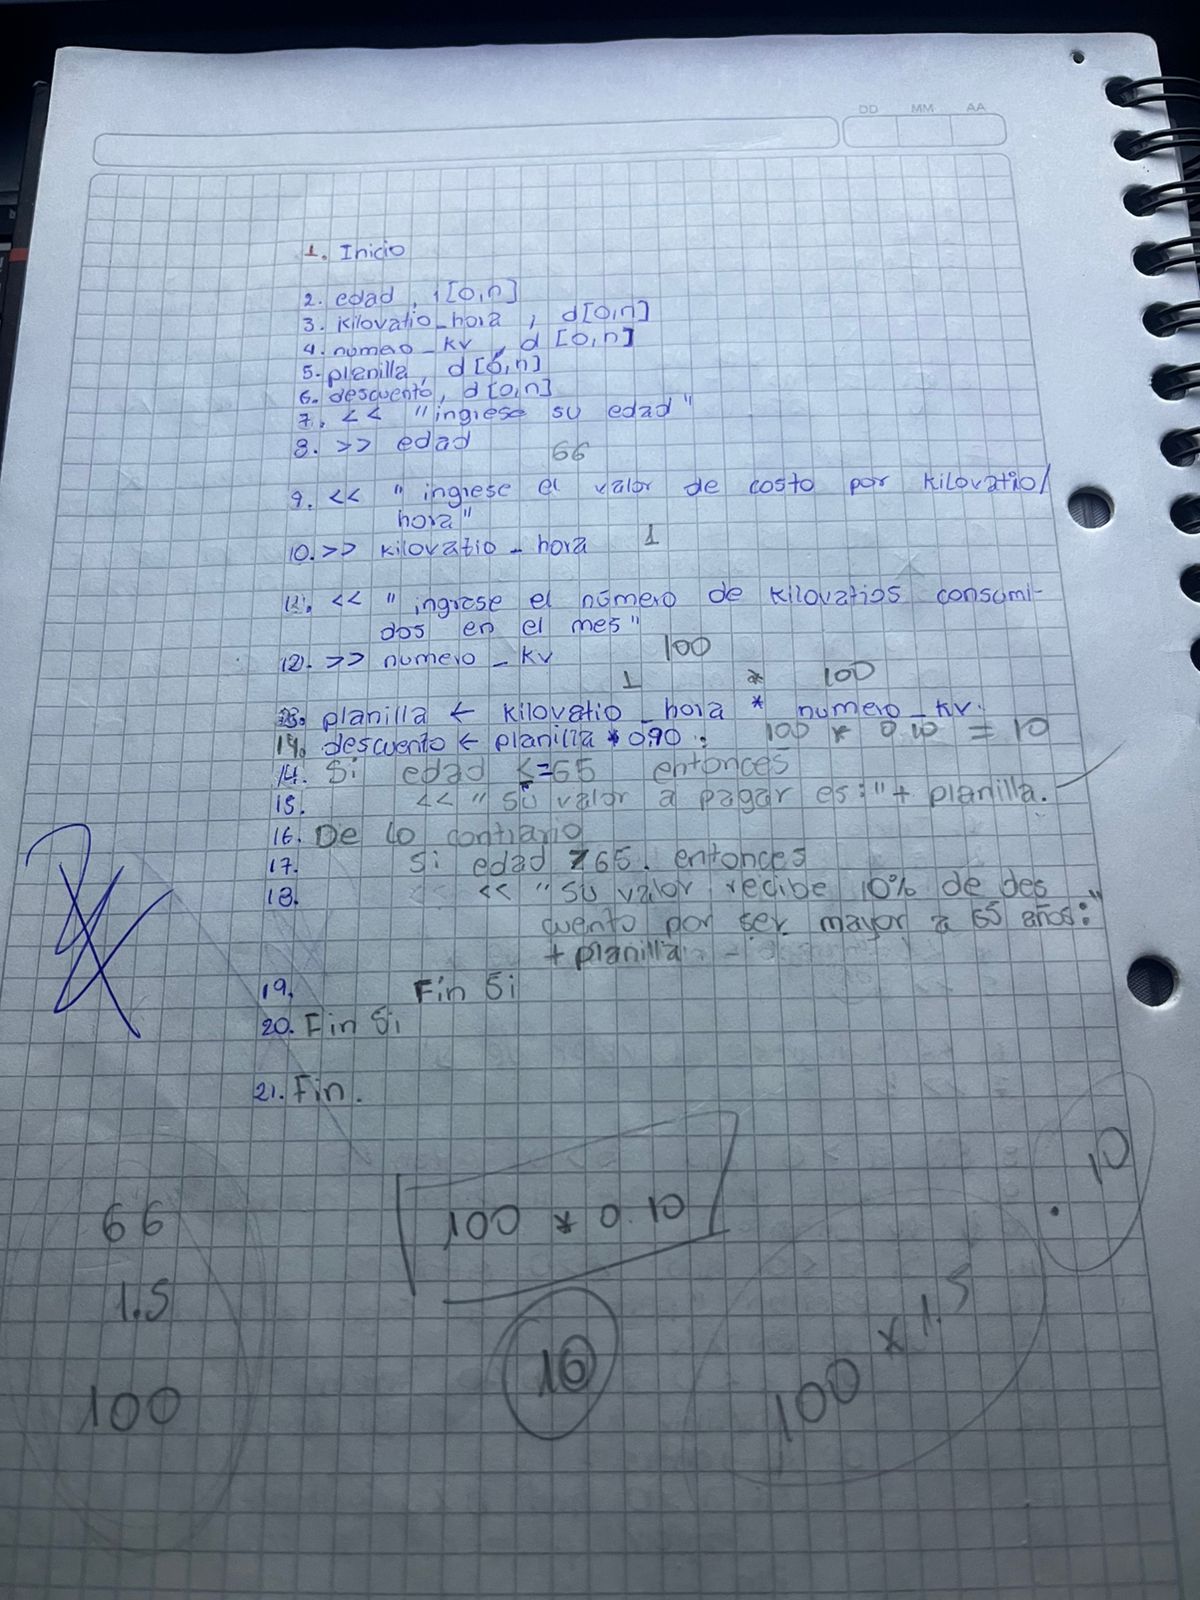 DD MM AA
1. Inicio
2. edad, i[0,n]
3. kilovatio_hora, d[0,n]
4. numero_kv, d[0,n]
5. planilla, d[0,n]
6. descuento, d[0,n]
7. << "ingrese su edad"
8. >> edad
66
9. << "ingrese el valor de costo por kilovatio/
hora"
10. >> kilovatio_hora 1
11. << "ingrese el número de kilovatios consumi-
dos en el mes"
12. >> numero_kv 100
1 * 100
13. planilla ← kilovatio_hora * numero_kv.
14. descuento ← planilla * 0.90. 100 * 0.10 = 10
14. Si edad <=65 entonces
15. << "su valor a pagar es:"+ planilla.
16. De lo contrario
17. Si edad >65. entonces
18. << "su valor recibe 10% de des
cuento por ser mayor a 65 años:"
+ planilla
19. Fin Si
20. Fin Si
21. Fin.
66
1.5
100
100 * 0.10
10
100 x 1.5
.10